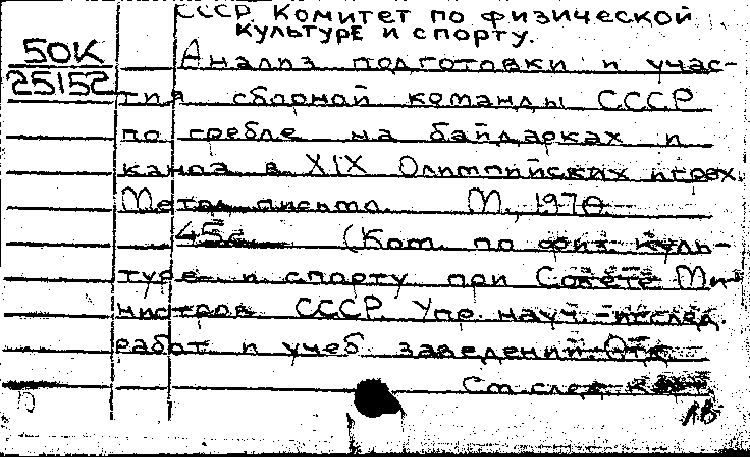 СССР. Комитет по физической
культуре и спорту.
50К
25152
Анализ подготовки и учас-
тия сборной команды СССР
по гребле на байдарках и
каноэ в XIX Олимпийских играх.
Метод. письмо. М., 1970.
45с. (Ком. по физ. куль-
туре и спорту при Совете Ми-
нистров СССР. Упр. науч.-исслед.
работ и учеб. заведений. Отд.
См. след.